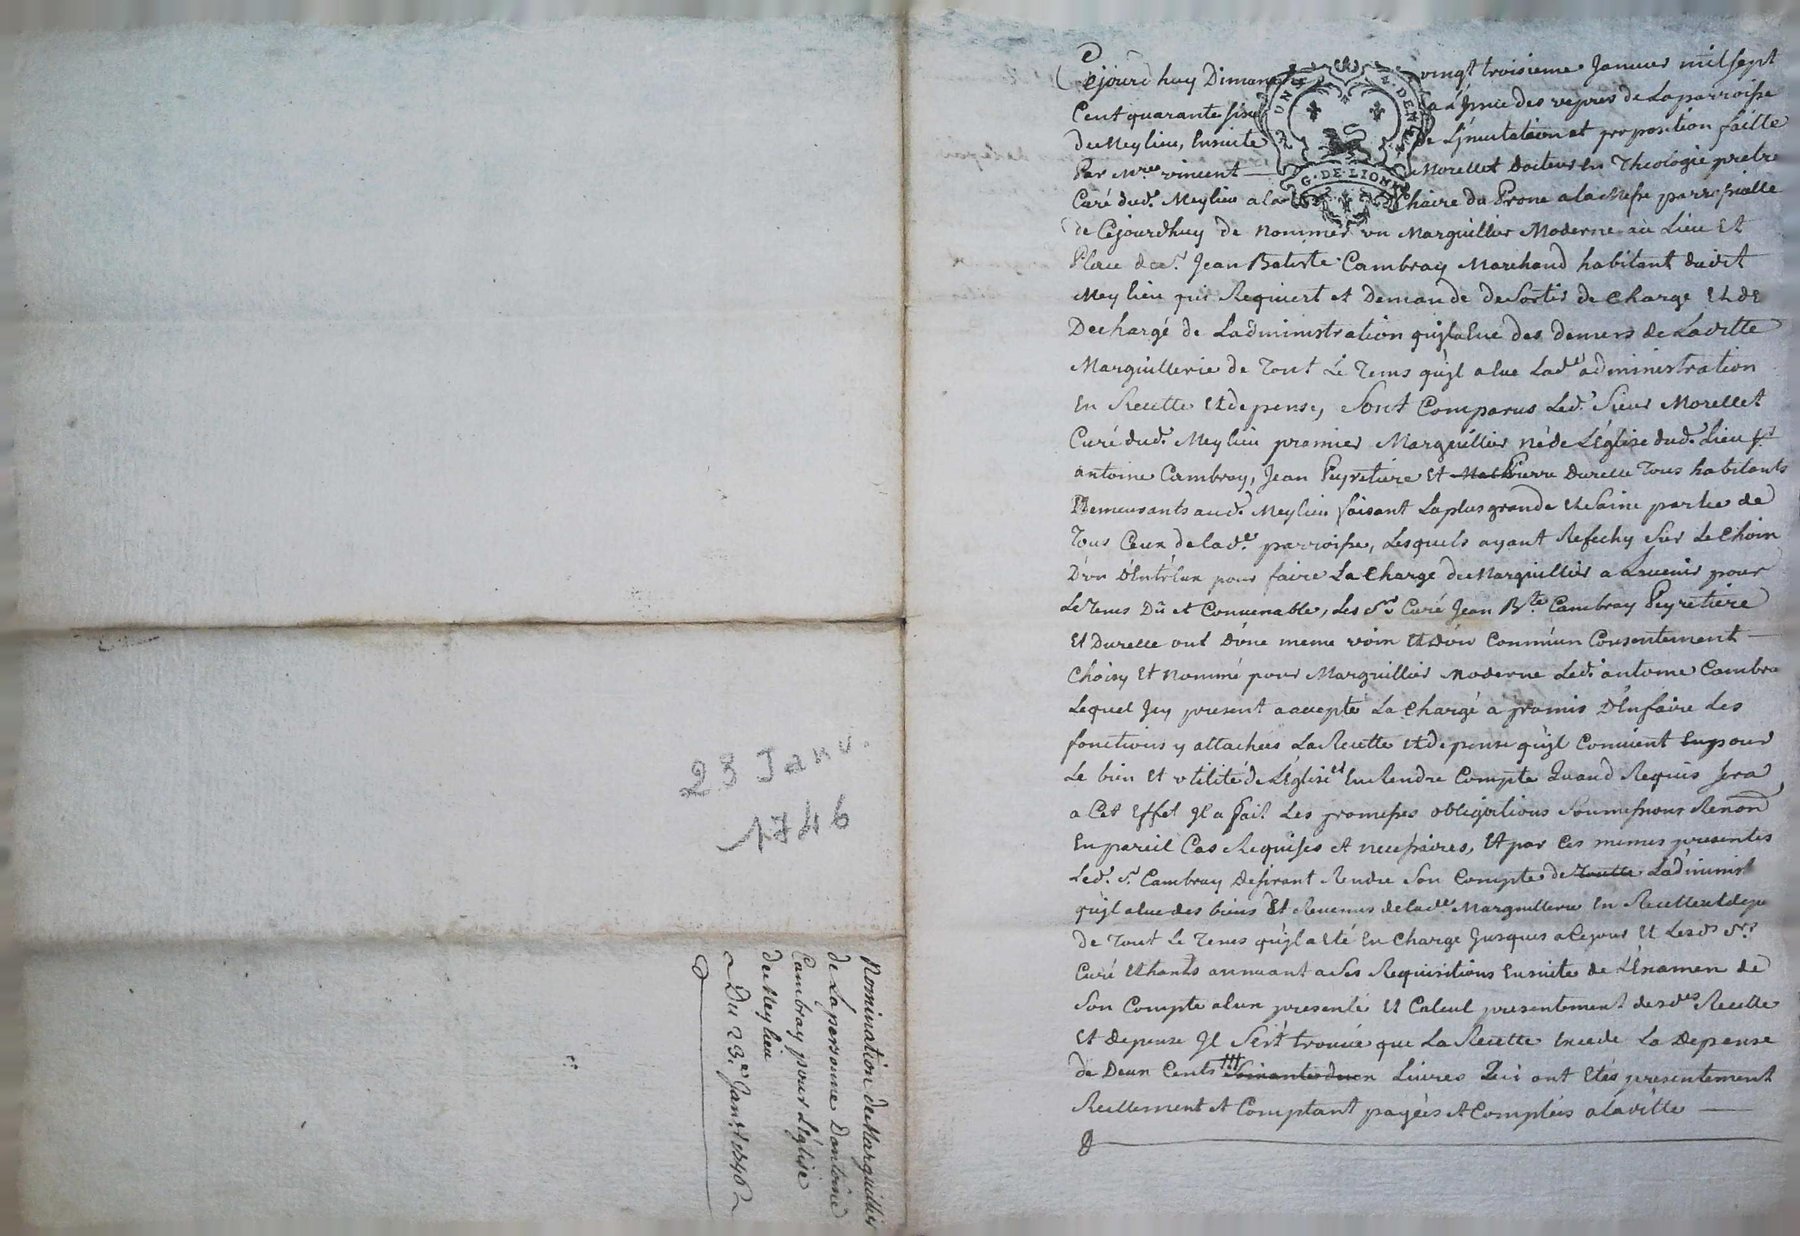 23 Janv.
1746
Nomination de Marguillier
de La personne Dantoine
Cambray pour L'Eglise
de Meylieu
Du 23.e Jan.er 1746
Cejourd'huy Dimanche vingt troisieme Janvier mil sept
Cent quarante six a L'jssue des vepres de La parroisse
de Meylieu, Ensuite de L'jnvitation et proposition faitte
Par Mre vincent Morellet Docteur En Theologie pretre
Curé dud. Meylieu a la Chaire du Prone a la Messe parroissialle
de Cejourdhuy de nommer un Marguillier Moderne au Lieu Et
Place de sr. Jean Batiste Cambray Marchand habitant dudit
Meylieu qui Requiert et Demande de Sortir de Charge Et de
Dechargé de Ladministration quyl a Eue des deniers de Laditte
Marguillerie de Tout Le Tems quyl a Eue Lade administration
En Recette Et depense, Sont Comparus Led. Sieur Morellet
Curé dud. Meylieu premier Marguillier né de L'Eglise dud. Lieu sr
antoine Cambray, Jean Peyretiere Et Pierre Durelle Tous habitants
Demeurants aud. Meylieu faisant La plus grande Et Saine partie de
Tous Ceux de lade parroisse, Lesquels ayant Reflechy Sur Le Choix
D'un D'Entr'Eux pour faire La Charge de Marguillier a a Lavenir pour
Le Tems Dû et Convenable, Les Srs Curé Jean Bte Cambray Peyretiere
Et Durelle ont D'une meme voix Et d'un Commun Consentement
Choisy Et nommé pour Marguillier moderne Led. antoine Cambra
Lequel Jcy present a accepté La Charge a promis D'En faire Les
fonctions y attachées La Recette Et depense quyl Convient pour
Le bien Et utilité de L'Eglise et En Rendre Compte Quand Requis sera
a Cet Effet Jl a fait Les promesses obligations Soumissions Renon
En pareil Cas Requises et necessaires, Et par Ces memes presentes
Led. Sr Cambray Desirant Rendre Son Compte de Toutte Ladminist
quyl a Eue des biens Et Revenus de lade Marguillerie En Recette et depe
de Tout Le Tems quyl a Eté En Charge Jusques a Cejour Et Lesds Srs
Curé Et habts annuant a Ses Requisitions Ensuite de L'Examen de
Son Compte a Eux presenté Et Calcul presentement desdes Recette
Et depense Jl S'est trouvé que La Recette Excede La Depense
de Deux Cents Soixante deux Livres Qui ont Etés presentement
Reellement et Comptant payées et Comptées a laditte